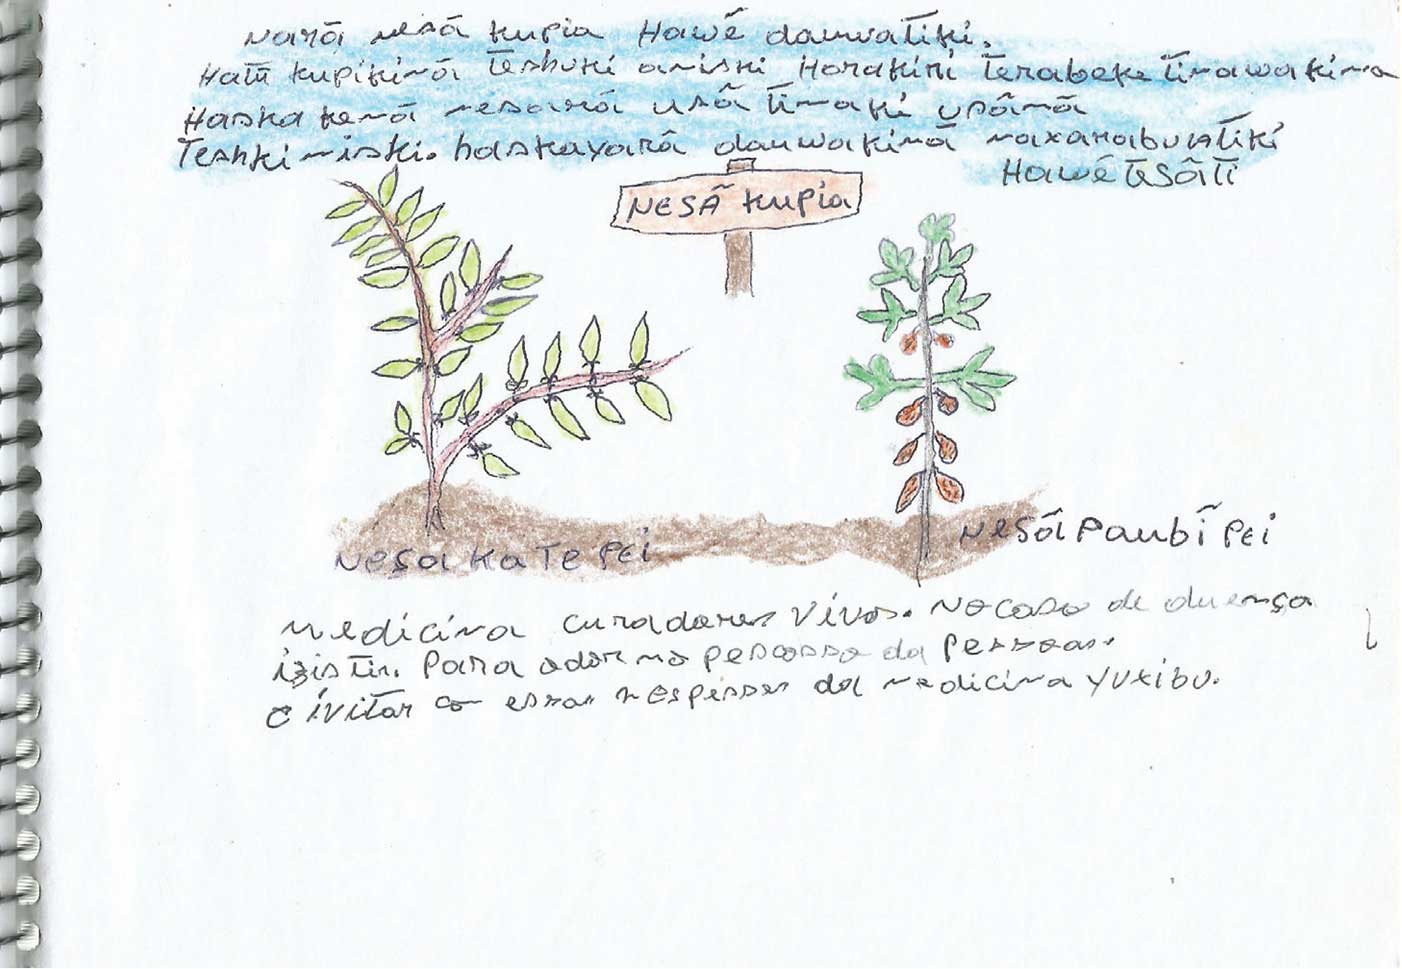 Narã nesã kupia Hawẽ dauwatiki.
Hatũ kupikinã teshuki aniski Horakiri terabeke tinawakina
Haska kenã nesarã usã timaki usãnã
Teshki miski. haskayarã dauwakinã naxarabuatiki
Hawẽ tesãti
NESÃ kupia
Nesa kate pei
Nesã Paubĩ pei
Medicina curadores vivos. No caso de duença
izistir. Para ador no pescosso da pessoas.
e ivitar co essas respisses da medicina yuxibu.